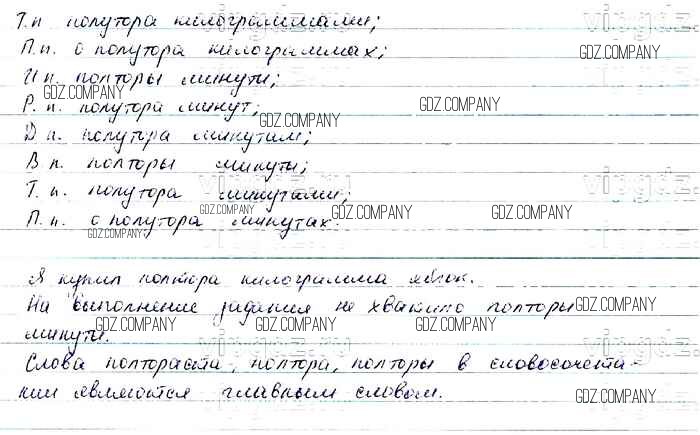 Т.п полутора килограммами;
П.п. о полутора килограммах;
И п. полторы минуты;
Р. п. полутора минут;
Д п. полутора минутам;
В п. полторы минуты;
Т. п. полутора минутами;
П. п. о полутора минутах.
Я купил полтора килограмма яблок.
На выполнение задания не хватило полторы
минуты.
Слова полтораста, полтора, полторы в словосочета-
нии являются главным словом.
vipgdz.ru
vipgdz.
GDZ.COMPANY
GDZ.COMPANY
GDZ.COMPANY
vipgdz.ru
vipgdz.
GDZ.COMPANY
GDZ.COMPANY
GDZ.COMPANY
GDZ.COMPANY
GDZ.COMPANY
GDZ.COMPANY
GDZ.COMPANY
GDZ.COMPANY
vipgdz.ru
vipgdz.
GDZ.COMPANY